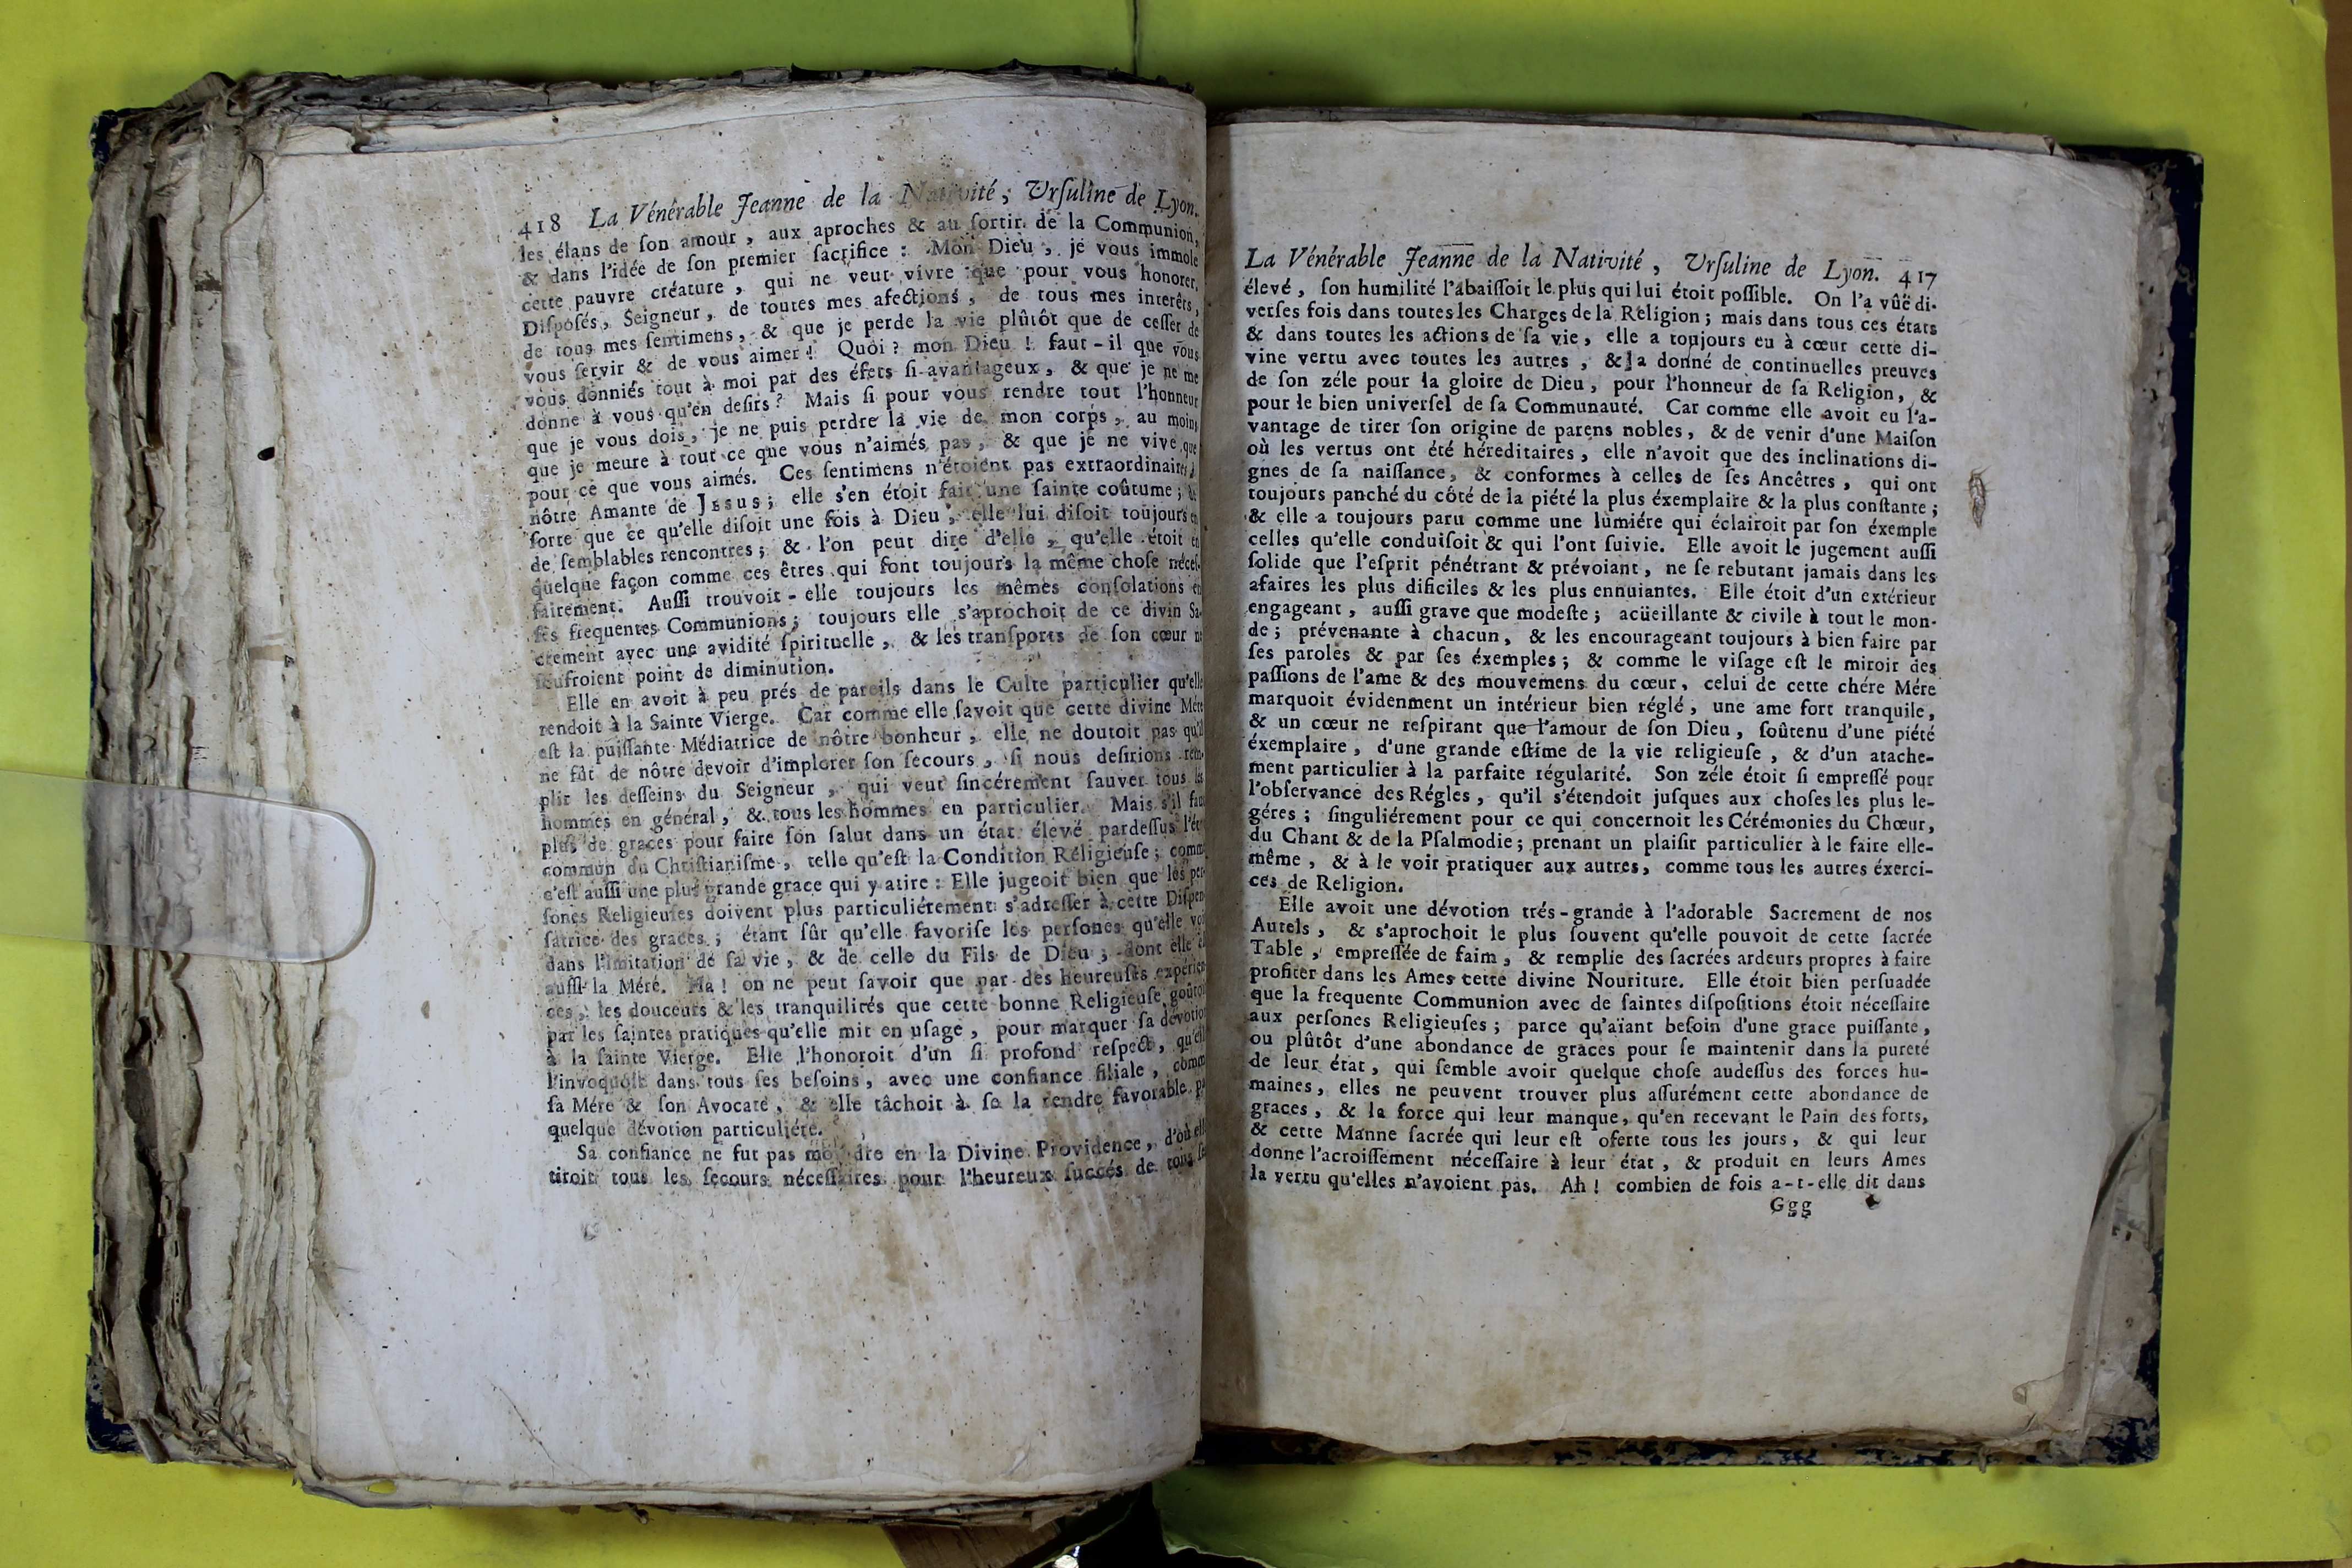 418 La Vénérable Jeanne de la Nativité, Urſuline de Lyon.
les élans de ſon amour, aux aproches & au ſortir de la Communion,
& dans l'idée de ſon premier ſacrifice : Mon Dieu, je vous immole
cette pauvre créature, qui ne veut vivre que pour vous honorer.
Diſpoſés, Seigneur, de toutes mes afections, de tous mes interêts,
de tous mes ſentimens, & que je perde la vie plûtôt que de ceſſer de
vous ſervir & de vous aimer ! Quoi ? mon Dieu ! faut-il que vous
vous donniés tout à moi par des éfets ſi avantageux, & que je ne me
donne à vous qu'en deſirs ? Mais ſi pour vous rendre tout l'honneur
que je vous dois, je ne puis perdre la vie de mon corps, au moins
que je meure à tout ce que vous n'aimés pas, & que je ne vive que
pour ce que vous aimés. Ces ſentimens n'étoient pas extraordinaires à
nôtre Amante de JESUS ; elle s'en étoit fait une ſainte coûtume ;
ſorte que ce qu'elle diſoit une fois à Dieu, elle lui diſoit toujours en
de ſemblables rencontres ; & l'on peut dire d'elle, qu'elle étoit en
quelque façon comme ces êtres qui font toujours la même choſe néceſ-
ſairement. Auſſi trouvoit-elle toujours les mêmes conſolations en
ſes frequentes Communions ; toujours elle s'aprochoit de ce divin Sa-
crement avec une avidité ſpirituelle, & les tranſports de ſon cœur ne
ſoufroient point de diminution.
Elle en avoit à peu prés de pareils dans le Culte particulier qu'elle
rendoit à la Sainte Vierge. Car comme elle ſavoit que cette divine Mére
eſt la puiſſante Médiatrice de nôtre bonheur, elle ne doutoit pas qu'il
ne fût de nôtre devoir d'implorer ſon ſecours, ſi nous deſirions rem-
plir les deſſeins du Seigneur, qui veut ſincérement ſauver tous les
hommes en général, & tous les hommes en particulier. Mais s'il faut
plus de graces pour faire ſon ſalut dans un état élevé pardeſſus l'état
commun du Chriſtianiſme, telle qu'eſt la Condition Réligieuſe ; comme
c'eſt auſſi une plus grande grace qui y atire : Elle jugeoit bien que les per-
ſones Religieuſes doivent plus particuliérement s'adreſſer à cette Diſpen-
ſatrice des graces ; étant ſûr qu'elle favoriſe les perſones qu'elle voit
dans l'imitation de ſa vie, & de celle du Fils de Dieu ; dont elle eſt
auſſi la Mére. Ha ! on ne peut ſavoir que par des heureuſes expérien-
ces, les douceurs & les tranquilités que cette bonne Religieuſe goûtoit
par les ſaintes pratiques qu'elle mit en uſage, pour marquer ſa dévotion
à la ſainte Vierge. Elle l'honoroit d'un ſi profond reſpect, qu'elle
l'invoquoit dans tous ſes beſoins, avec une confiance filiale, comme
ſa Mére & ſon Avocate, & elle tâchoit à ſe la rendre favorable par
quelque dévotion particuliére.
Sa confiance ne fut pas moindre en la Divine Providence, d'où elle
tiroit tous les ſecours néceſſaires pour l'heureux ſuccés de tous ſes
La Vénérable Jeanne de la Nativité, Urſuline de Lyon. 417
élevé, ſon humilité l'abaiſſoit le plus qui lui étoit poſſible. On l'a vûë di-
verſes fois dans toutes les Charges de la Religion ; mais dans tous ces états
& dans toutes les actions de ſa vie, elle a toujours eu à cœur cette di-
vine vertu avec toutes les autres, & a donné de continuelles preuves
de ſon zéle pour la gloire de Dieu, pour l'honneur de ſa Religion, &
pour le bien univerſel de ſa Communauté. Car comme elle avoit eu l'a-
vantage de tirer ſon origine de parens nobles, & de venir d'une Maiſon
où les vertus ont été héreditaires, elle n'avoit que des inclinations di-
gnes de ſa naiſſance, & conformes à celles de ſes Ancêtres, qui ont
toujours panché du côté de la piété la plus éxemplaire & la plus conſtante ;
& elle a toujours paru comme une lumiére qui éclairoit par ſon éxemple
celles qu'elle conduiſoit & qui l'ont ſuivie. Elle avoit le jugement auſſi
ſolide que l'eſprit pénétrant & prévoiant, ne ſe rebutant jamais dans les
afaires les plus dificiles & les plus ennuiantes. Elle étoit d'un extérieur
engageant, auſſi grave que modeſte ; acüeillante & civile à tout le mon-
de ; prévenante à chacun, & les encourageant toujours à bien faire par
ſes paroles & par ſes éxemples ; & comme le viſage eſt le miroir des
paſſions de l'ame & des mouvemens du cœur, celui de cette chére Mére
marquoit évidenment un intérieur bien réglé, une ame fort tranquile,
& un cœur ne reſpirant que l'amour de ſon Dieu, ſoûtenu d'une piété
éxemplaire, d'une grande eſtime de la vie religieuſe, & d'un atache-
ment particulier à la parfaite régularité. Son zéle étoit ſi empreſſé pour
l'obſervance des Régles, qu'il s'étendoit juſques aux choſes les plus le-
géres ; ſinguliérement pour ce qui concernoit les Cérémonies du Chœur,
du Chant & de la Pſalmodie ; prenant un plaiſir particulier à le faire elle-
même, & à le voir pratiquer aux autres, comme tous les autres éxerci-
ces de Religion.
Elle avoit une dévotion trés-grande à l'adorable Sacrement de nos
Autels, & s'aprochoit le plus ſouvent qu'elle pouvoit de cette ſacrée
Table, empreſſée de faim, & remplie des ſacrées ardeurs propres à faire
profiter dans les Ames cette divine Nouriture. Elle étoit bien perſuadée
que la frequente Communion avec de ſaintes diſpoſitions étoit néceſſaire
aux perſones Religieuſes ; parce qu'aïant beſoin d'une grace puiſſante,
ou plûtôt d'une abondance de graces pour ſe maintenir dans la pureté
de leur état, qui ſemble avoir quelque choſe audeſſus des forces hu-
maines, elles ne peuvent trouver plus aſſurément cette abondance de
graces, & la force qui leur manque, qu'en recevant le Pain des forts,
& cette Manne ſacrée qui leur eſt oferte tous les jours, & qui leur
donne l'acroiſſement néceſſaire à leur état, & produit en leurs Ames
la vertu qu'elles n'avoient pas. Ah ! combien de fois a-t-elle dit dans
Ggg